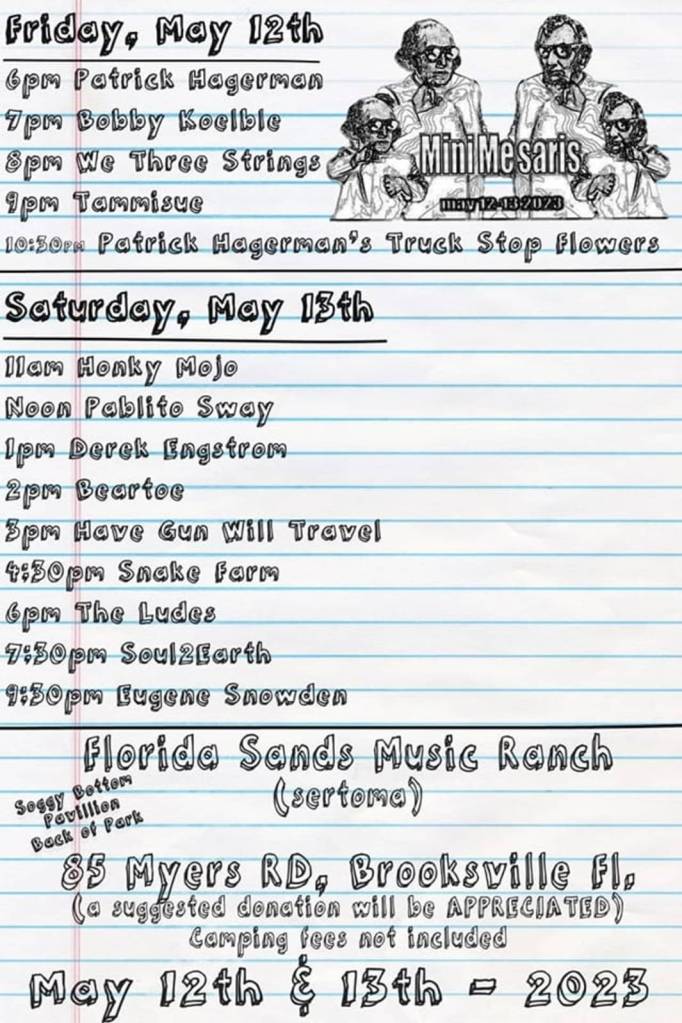 Friday, May 12th
6pm Patrick Hagerman
7pm Bobby Koelble
8pm We Three Strings
9pm Tammisue
10:30pm Patrick Hagerman's Truck Stop Flowers
MiniMesaris
may 12-13 2023
Saturday, May 13th
11am Honky Mojo
Noon Pablito Sway
1pm Derek Engstrom
2pm Beartoe
3pm Have Gun Will Travel
4:30pm Snake Farm
6pm The Ludes
7:30pm Soul2Earth
9:30pm Eugene Snowden
Florida Sands Music Ranch
(sertoma)
Soggy Bottom
Pavillion
Back of Park
85 Myers RD, Brooksville Fl,
(a suggested donation will be APPRECIATED)
Camping fees not included
May 12th & 13th - 2023